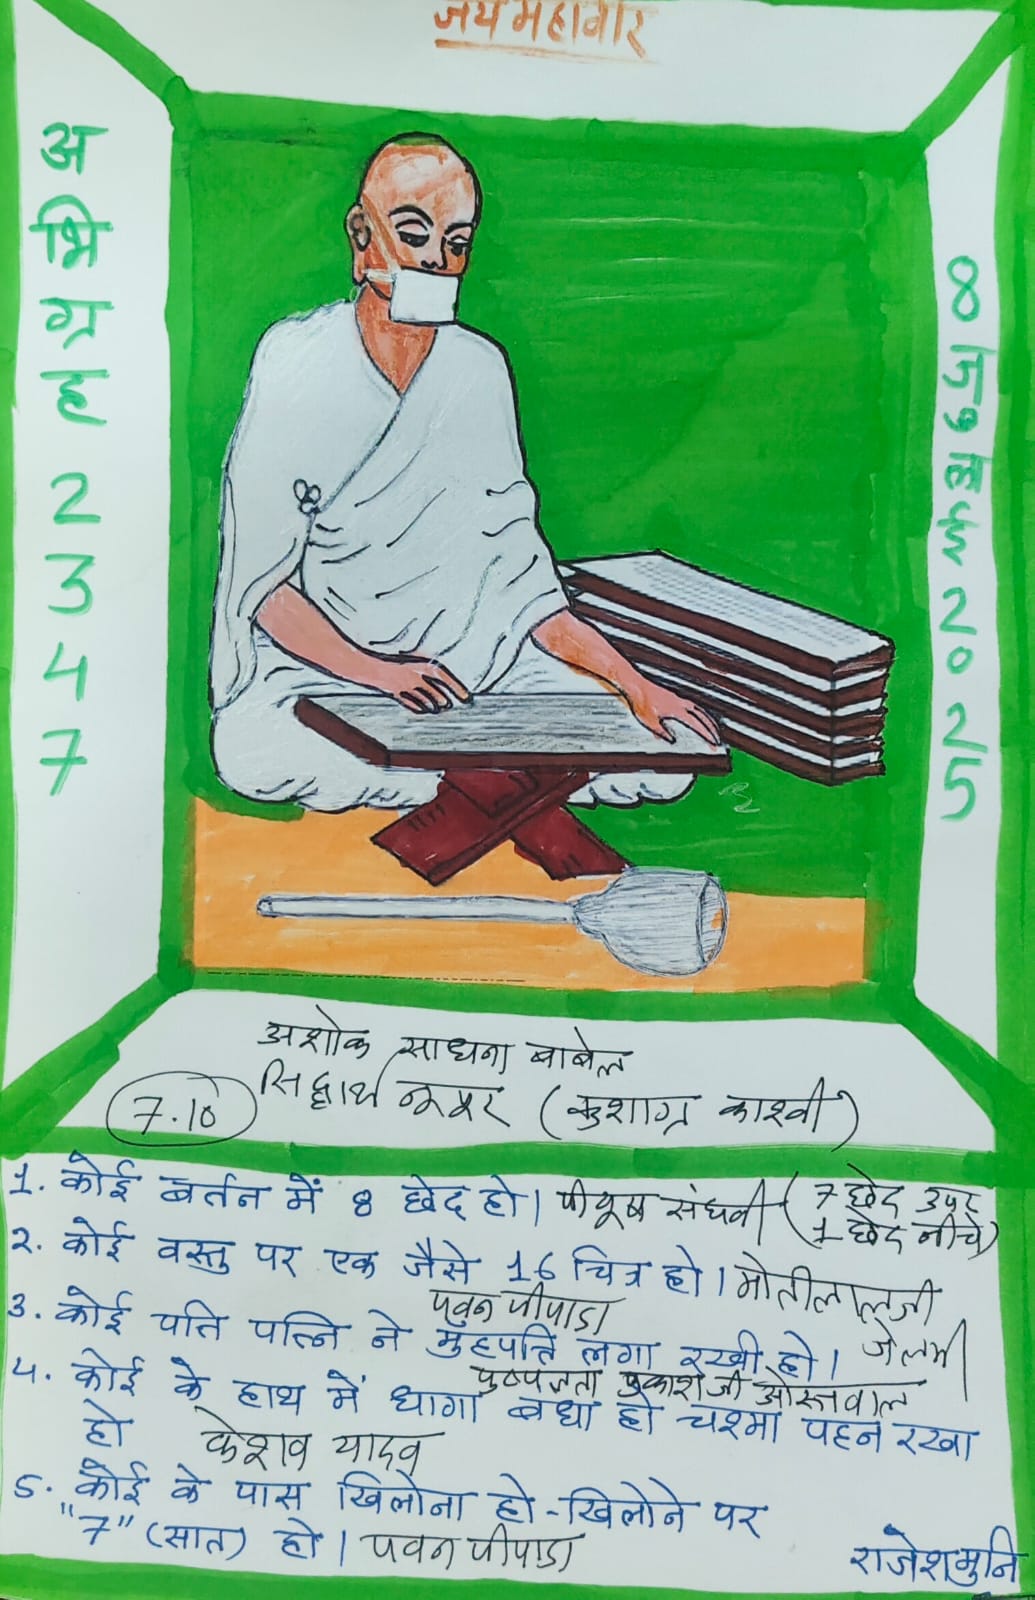 जय महावीर
अभिग्रह 2347
8 जुलाई 2025
अशोक साधना बाबेल
सिद्धार्थ नुपुर (कुशाग्र काश्वी)
7.10
1. कोई बर्तन में 8 छेद हो। पीयूष संघवी (7 छेद उपर
1 छेद नीचे)
2. कोई वस्तु पर एक जैसे 16 चित्र हो। मोतीलालजी
पवन पीपाडा
3. कोई पति पत्नि ने मुहपति लगा रखी हो।
पुष्पलता प्रकाशजी ओस्तवाल
4. कोई के हाथ में धागा बंधा हो चश्मा पहन रखा
हो केशव यादव
5. कोई के पास खिलोना हो - खिलोने पर
"7" (सात) हो। पवन पीपाडा
राजेशमुनि